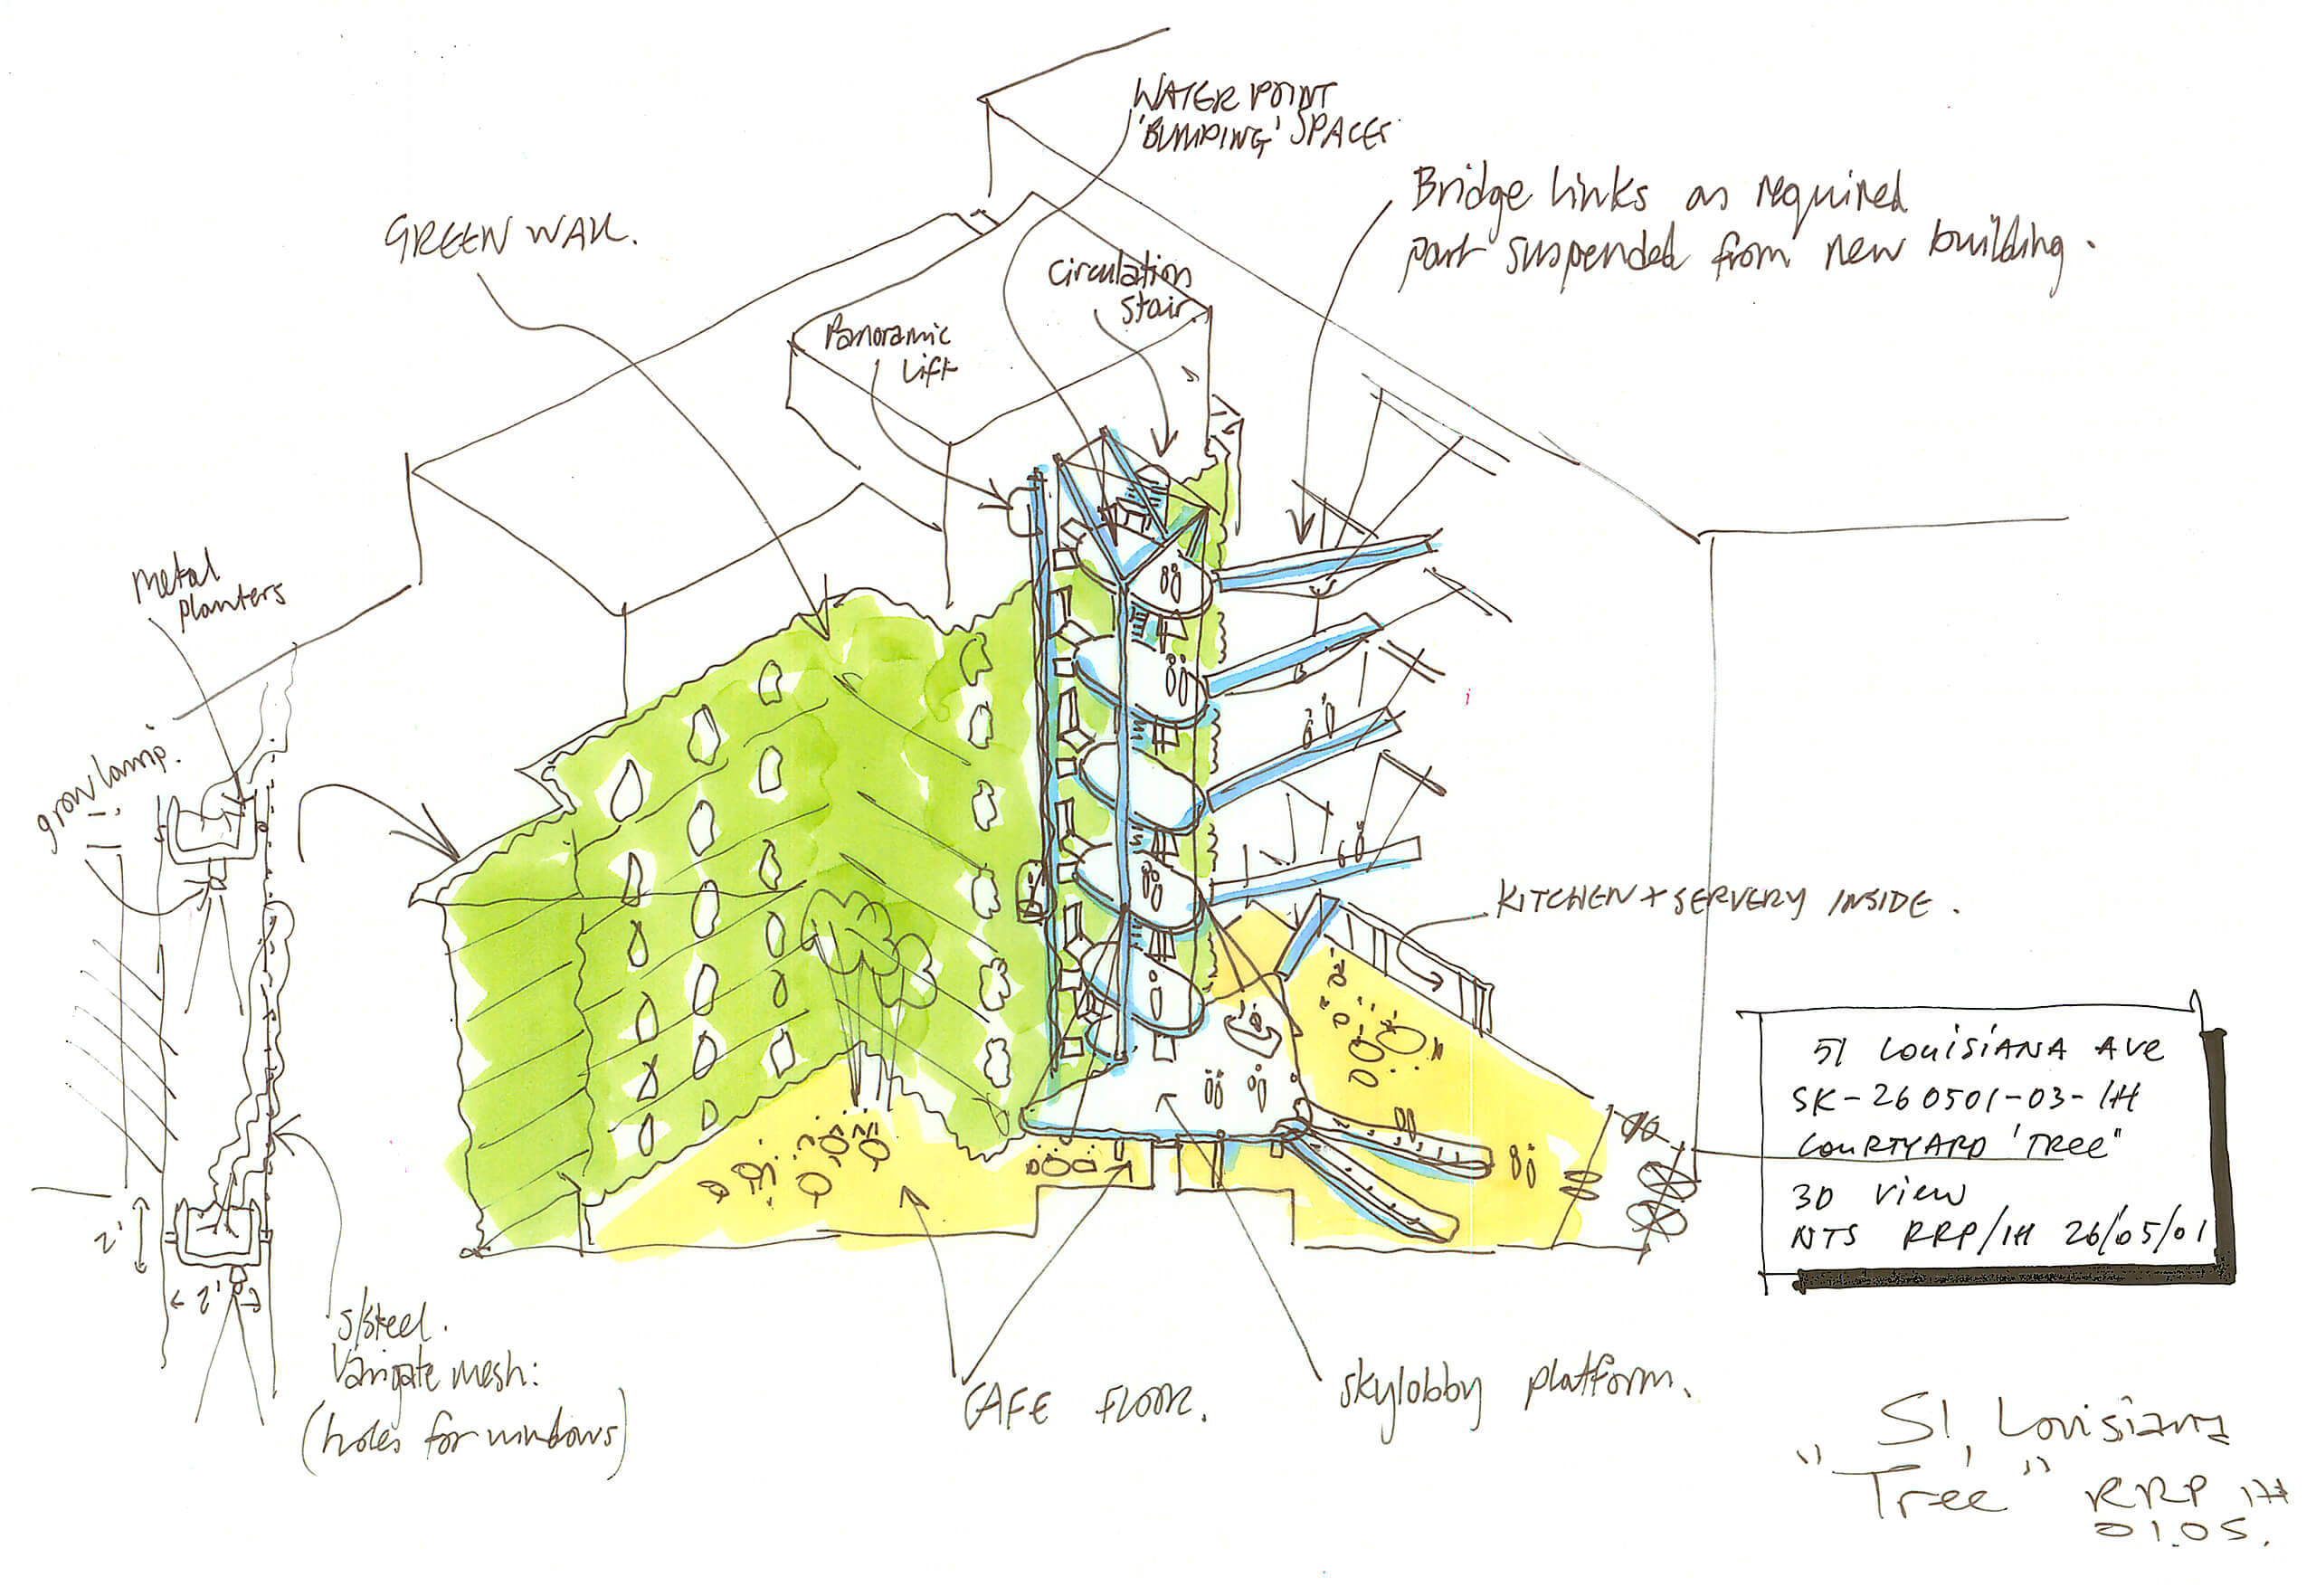 WATER POINT
'BUMPING' SPACES
Bridge links as required
part suspended from new building.
GREEN WALL.
Circulation
stair.
Panoramic
Lift
Metal
planters
grow lamp.
KITCHEN + SERVERY INSIDE.
51 LOUISIANA AVE
SK-260501-03-IH
COURTYARD 'TREE"
3D VIEW
NTS RRP/IH 26/05/01
2'
2'
S/Steel.
mesh:
(holes for windows)
CAFE FLOOR.
Skylobby platform.
51, Louisiana
"Tree" RRP IH
01.05.